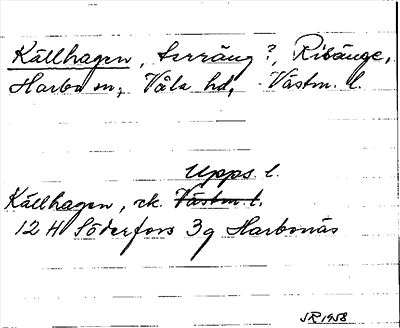 Källhagen, terräng?, Risänge,
Harbo sn, Våla hd, Västm. l.
Upps. l.
Källhagen, ek. Västm l.
12 H Söderfors 3g Harbonäs
JR 1958